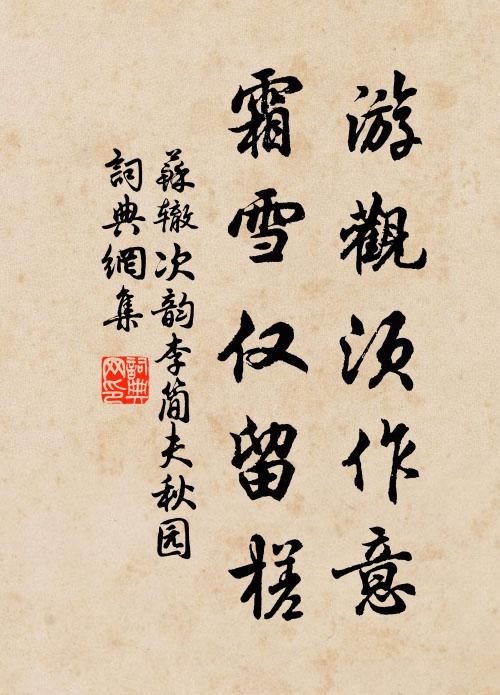 游觀须作意
霜雪仅留槎
蘇辙次韵李简夫秋园
詞典網集
詞典网印